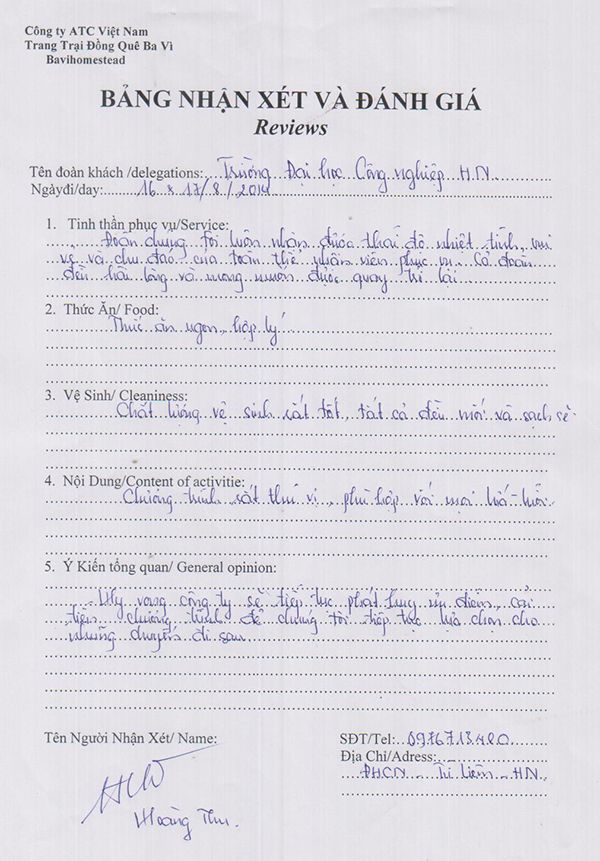 Công ty ATC Việt Nam
Trang Trại Đồng Quê Ba Vì
Bavihomestead
BẢNG NHẬN XÉT VÀ ĐÁNH GIÁ
Reviews
Tên đoàn khách /delegations: Trường Đại học Công nghiệp H.N
Ngàyđi/day: 16 & 17/8/2014
1. Tinh thần phục vụ/Service:
Đoàn chúng tôi luôn nhận được thái độ nhiệt tình, vui
vẻ và chu đáo của toàn thể nhân viên phục vụ. Cả đoàn
đều hài lòng và mong muốn được quay trở lại.
2. Thức Ăn/ Food:
Thức ăn ngon, hợp lý
3. Vệ Sinh/ Cleaniness:
Chất lượng vệ sinh rất tốt, tất cả đều mới và sạch sẽ
4. Nội Dung/Content of activitie:
Chương trình rất thú vị, phù hợp với mọi lứa tuổi
5. Ý Kiến tổng quan/ General opinion:
Hy vọng công ty sẽ tiếp tục phát huy ưu điểm, cải
tiến chương trình để chúng tôi tiếp tục lựa chọn cho
những chuyến đi sau.
Tên Người Nhận Xét/ Name:
SĐT/Tel: 0976713420
Địa Chỉ/Adress:
ĐHCN - Từ Liêm - HN
Hoàng Thu.